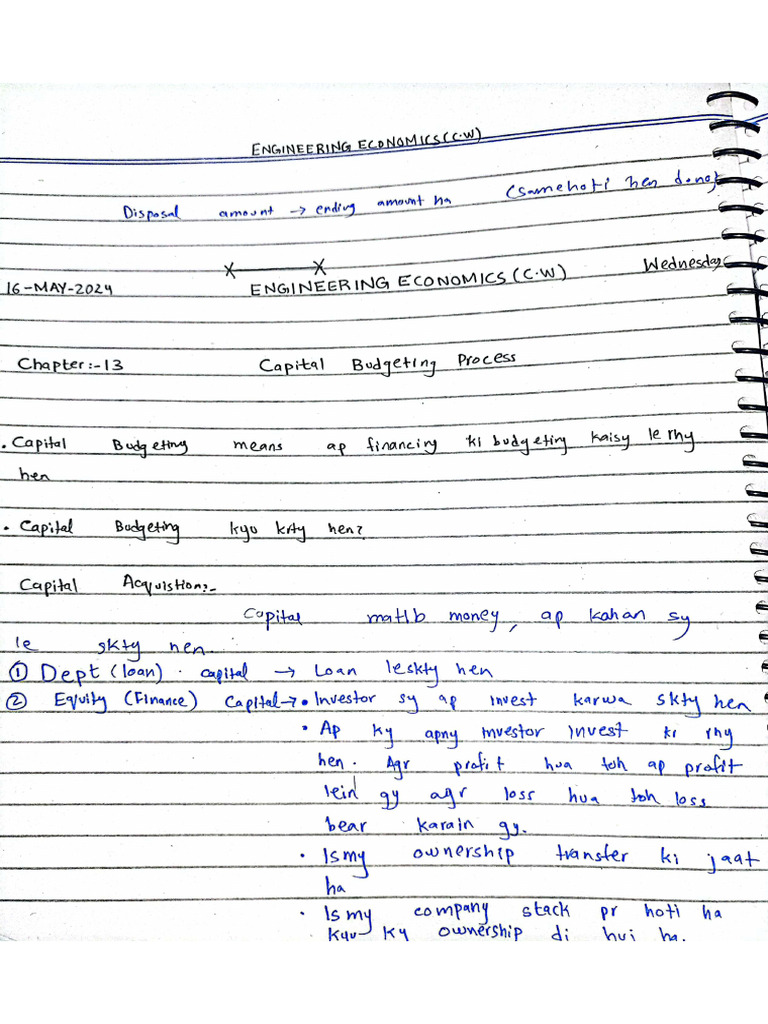 ENGINEERING ECONOMICS (C.W)
Disposal amount → ending amount ha (same hoti hen dono)
X———X
16-MAY-2024 ENGINEERING ECONOMICS (C.W) Wednesday
Chapter:-13 Capital Budgeting Process
• Capital Budgeting means ap financing ki budgeting kaisy le rhy
hen
• Capital Budgeting kyu krty hen?
Capital Acquistion:-
Capital matlb money, ap kahan sy
le skty hen.
① Dept (loan) . capital → Loan leskty hen
② Equity (Finance) Capital → • Investor sy ap invest karwa skty hen
• Ap ky apny investor invest ki rhy
hen. Agr profit hua toh ap profit
lein gy agr loss hua toh loss
bear karain gy.
• Ismy ownership transfer ki jaat
ha
• Ismy company stack pr hoti ha
kyu ky ownership di hui ha.